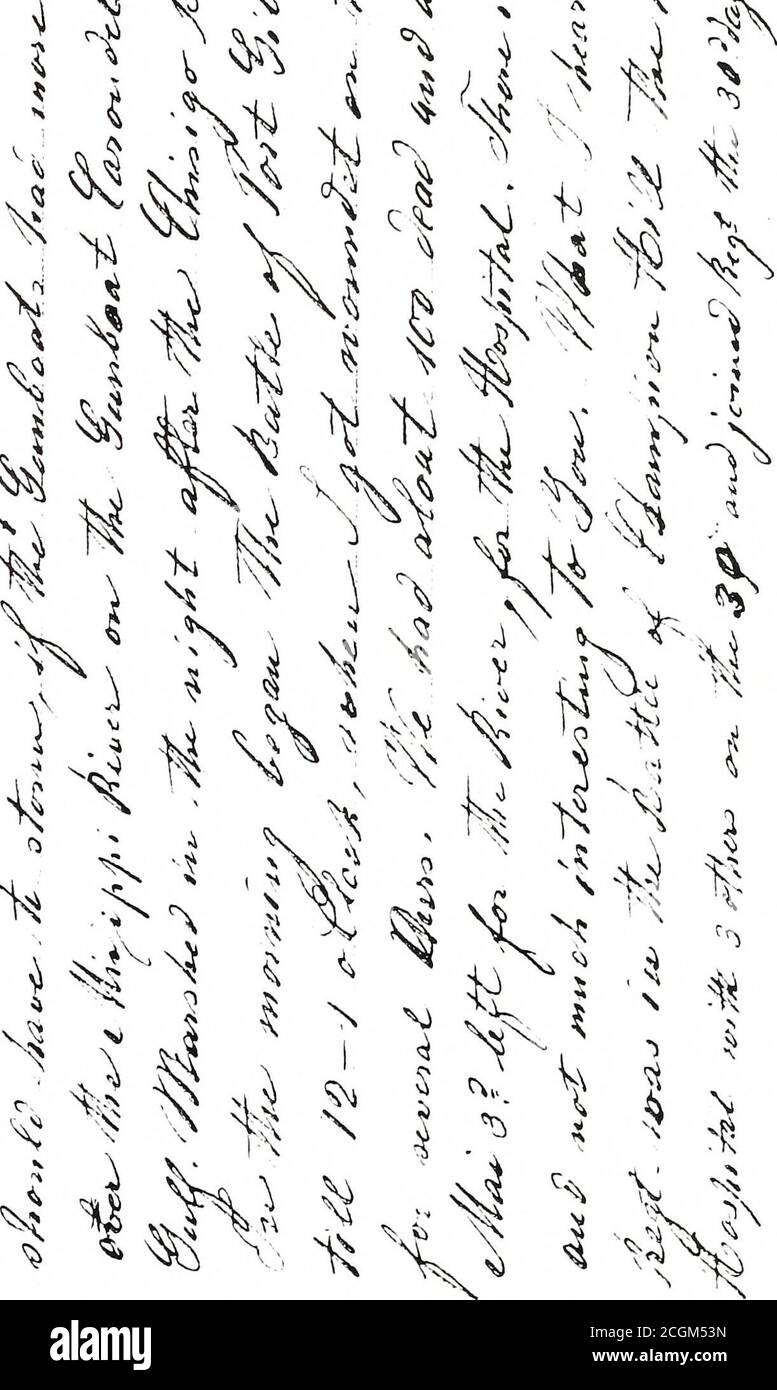 should have to storm, if the Gunboats had more
over the Missippi River on the Gunboat Caronde
Gulf. Marshed in the night after the
In the morning began the Battle of Port Gi
till 12-1 oClock, when I got woundet on
for several hours. We had about 100 dead and
Mai 3d left for the River, for the Hospital. There
and not much interesting to You. What I hear
Regt. was in the Battle of Champion Hill the
Hospital with 3 others on the 30 and joined Regt the 30d day
alamy
Image ID: 2CGM53N
www.alamy.com